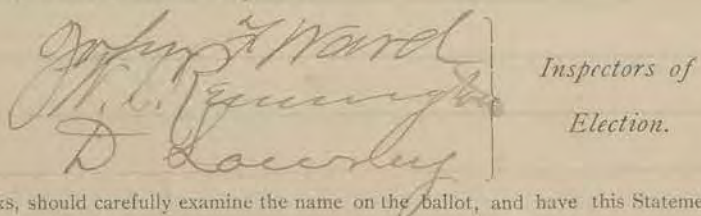 John F Ward
W. C. Remington
D Lowrey
Inspectors of
Election.
should carefully examine the name on the ballot, and have this